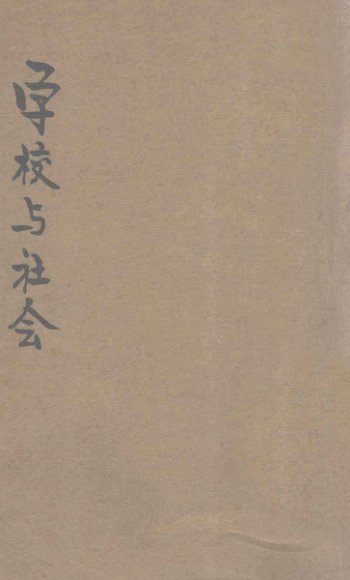 学校与社会